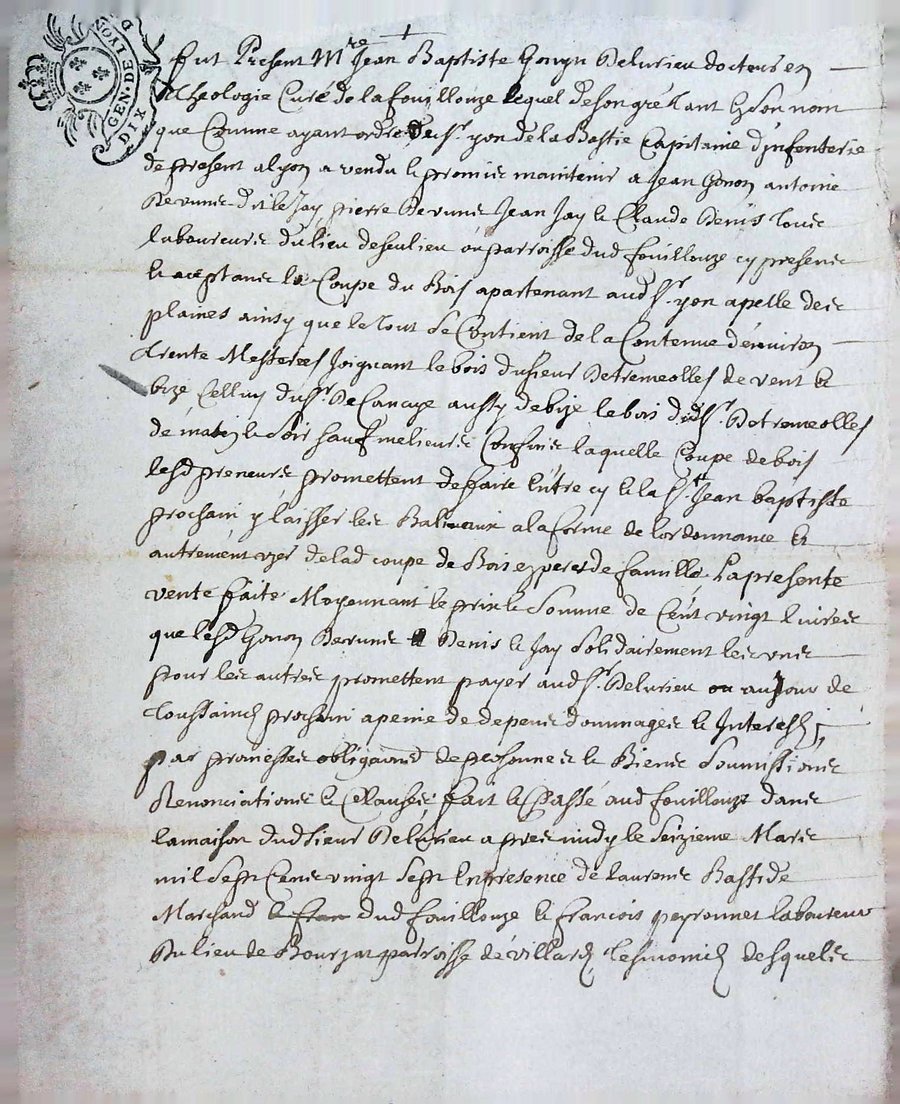 GEN · DE LYON
DIX D
fut Present Mre Jean Baptiste Gonyn Delurieu docteur en
Theologie Curé de la fouillouze lequel de son gré tant en son nom
que Comme ayant ordre de Sr. yon de la Bastie Capitaine d'jnfenterie
de present a lyon a vendu & promis maintenir a Jean Gonon antoine
dit le Jay pierre Jean Jay & Claude Denis tous
laboureurs du lieu de ou parroisse dud fouillouze cy presents
& aceptants la Coupe du Bois apartenant aud Sr. yon apelle des
plaines ainsy que le tout se Contient de la Contenue d'enuiron
trente Mesterees Joignant le bois du sieur Detremeolles de vent &
bize Celluy du Sr. aussy de bize le bois dud Sr. Detremeolles
de matin & soir sauf melieurs Confins laquelle Coupe de bois
lesd preneurs promettent de faire Entre cy & la St. Jean baptiste
prochain y laisser les Baliueaux a la forme de lordonnance &
autrement vzer de lad coupe de Bois en peres de famille La presente
vente faite Moyennant le prix & Somme de Cent vingt liures
que lesd Gonon Denis & Jay Solidairement les vns
pour les autres promettent payer aud Sr. Delurieu au Jour de
Toussainctz prochain a peine de depens dommages & Interestz
par promesses de personnes & Biens Soumissions
Renonciations & Clauses fait & Passé aud fouillouze dans
la maison dud sieur Delurieu apres midy le Seizieme Mars
mil sept Cents vingt sept En presence de laurens Bastide
Marchand dud fouillouze & francois peyronnet laboureur
Du lieu de parroisse de villardz tesmoins desquels